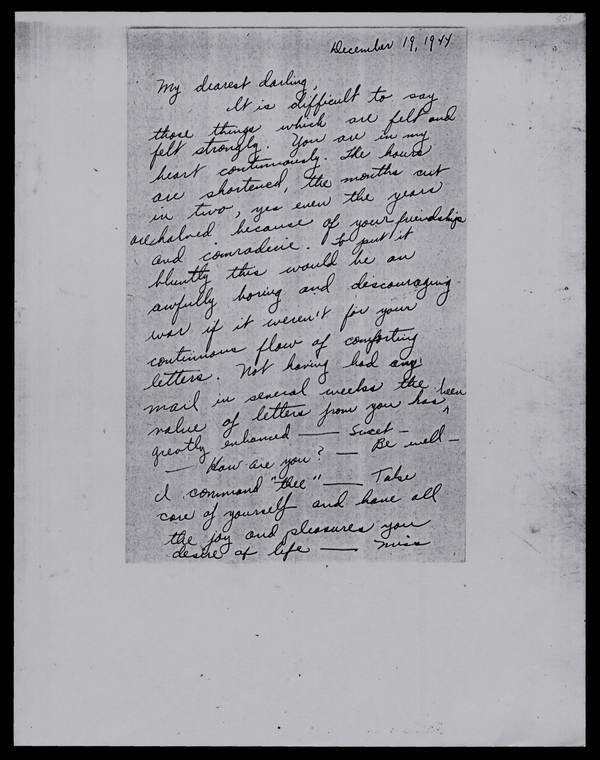 551
December 19, 1944
My dearest darling,
It is difficult to say
those things which are felt and
felt strongly. You are in my
heart continuously. The hours
are shortened, the months cut
in two, yes even the years
are halved because of your friendship
and comraderie. To put it
bluntly this would be an
awfully boring and discouraging
war if it weren't for your
continuous flow of comforting
letters. Not having had any
mail in several weeks the
value of letters from you has been
greatly enhanced — Sweet —
— How are you? — Be well —
I command "thee" — Take
care of yourself and have all
the joy and pleasures you
desire of life — Miss